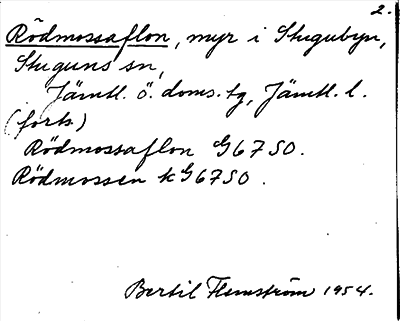 2.
Rödmossaflon, myr i Stugubyn,
Stuguns sn,
Jämtl. ö. doms. tg, Jämtl. l.
(forts.)
Rödmossaflon G67SO.
Rödmossen k G67SO.
Bertil Flemström 1954.